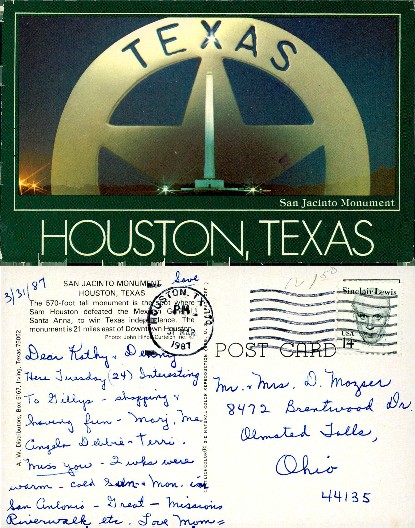 TEXAS
San Jacinto Monument
HOUSTON, TEXAS
3/31/87
SAN JACINTO MONUMENT
HOUSTON, TEXAS
Save
The 570-foot tall monument is the spot where
Sam Houston defeated the Mexican General
Santa Anna, to win Texas Independence. The
monument is 21 miles east of Downtown Houston.
HOUSTON, T
PM
31 MAR
1987
Sinclair Lewis
USA
14
POST CARD
A. W. Distributors, Box 5167, Irving, Texas 75062
Dear Kathy &
Here Tuesday (24) Interesting
To Gillys - shopping &
having fun - Marj, Me,
Angela Debbie - Terri.
Miss you - 2 wks were
warm - cold Sun & Mon. in
San Antonio - Great - Missions
Riverwalk etc. Love Mom
Mr. & Mrs. D. Mozser
8472 Brentwood Dr.
Olmsted Falls,
Ohio
44135